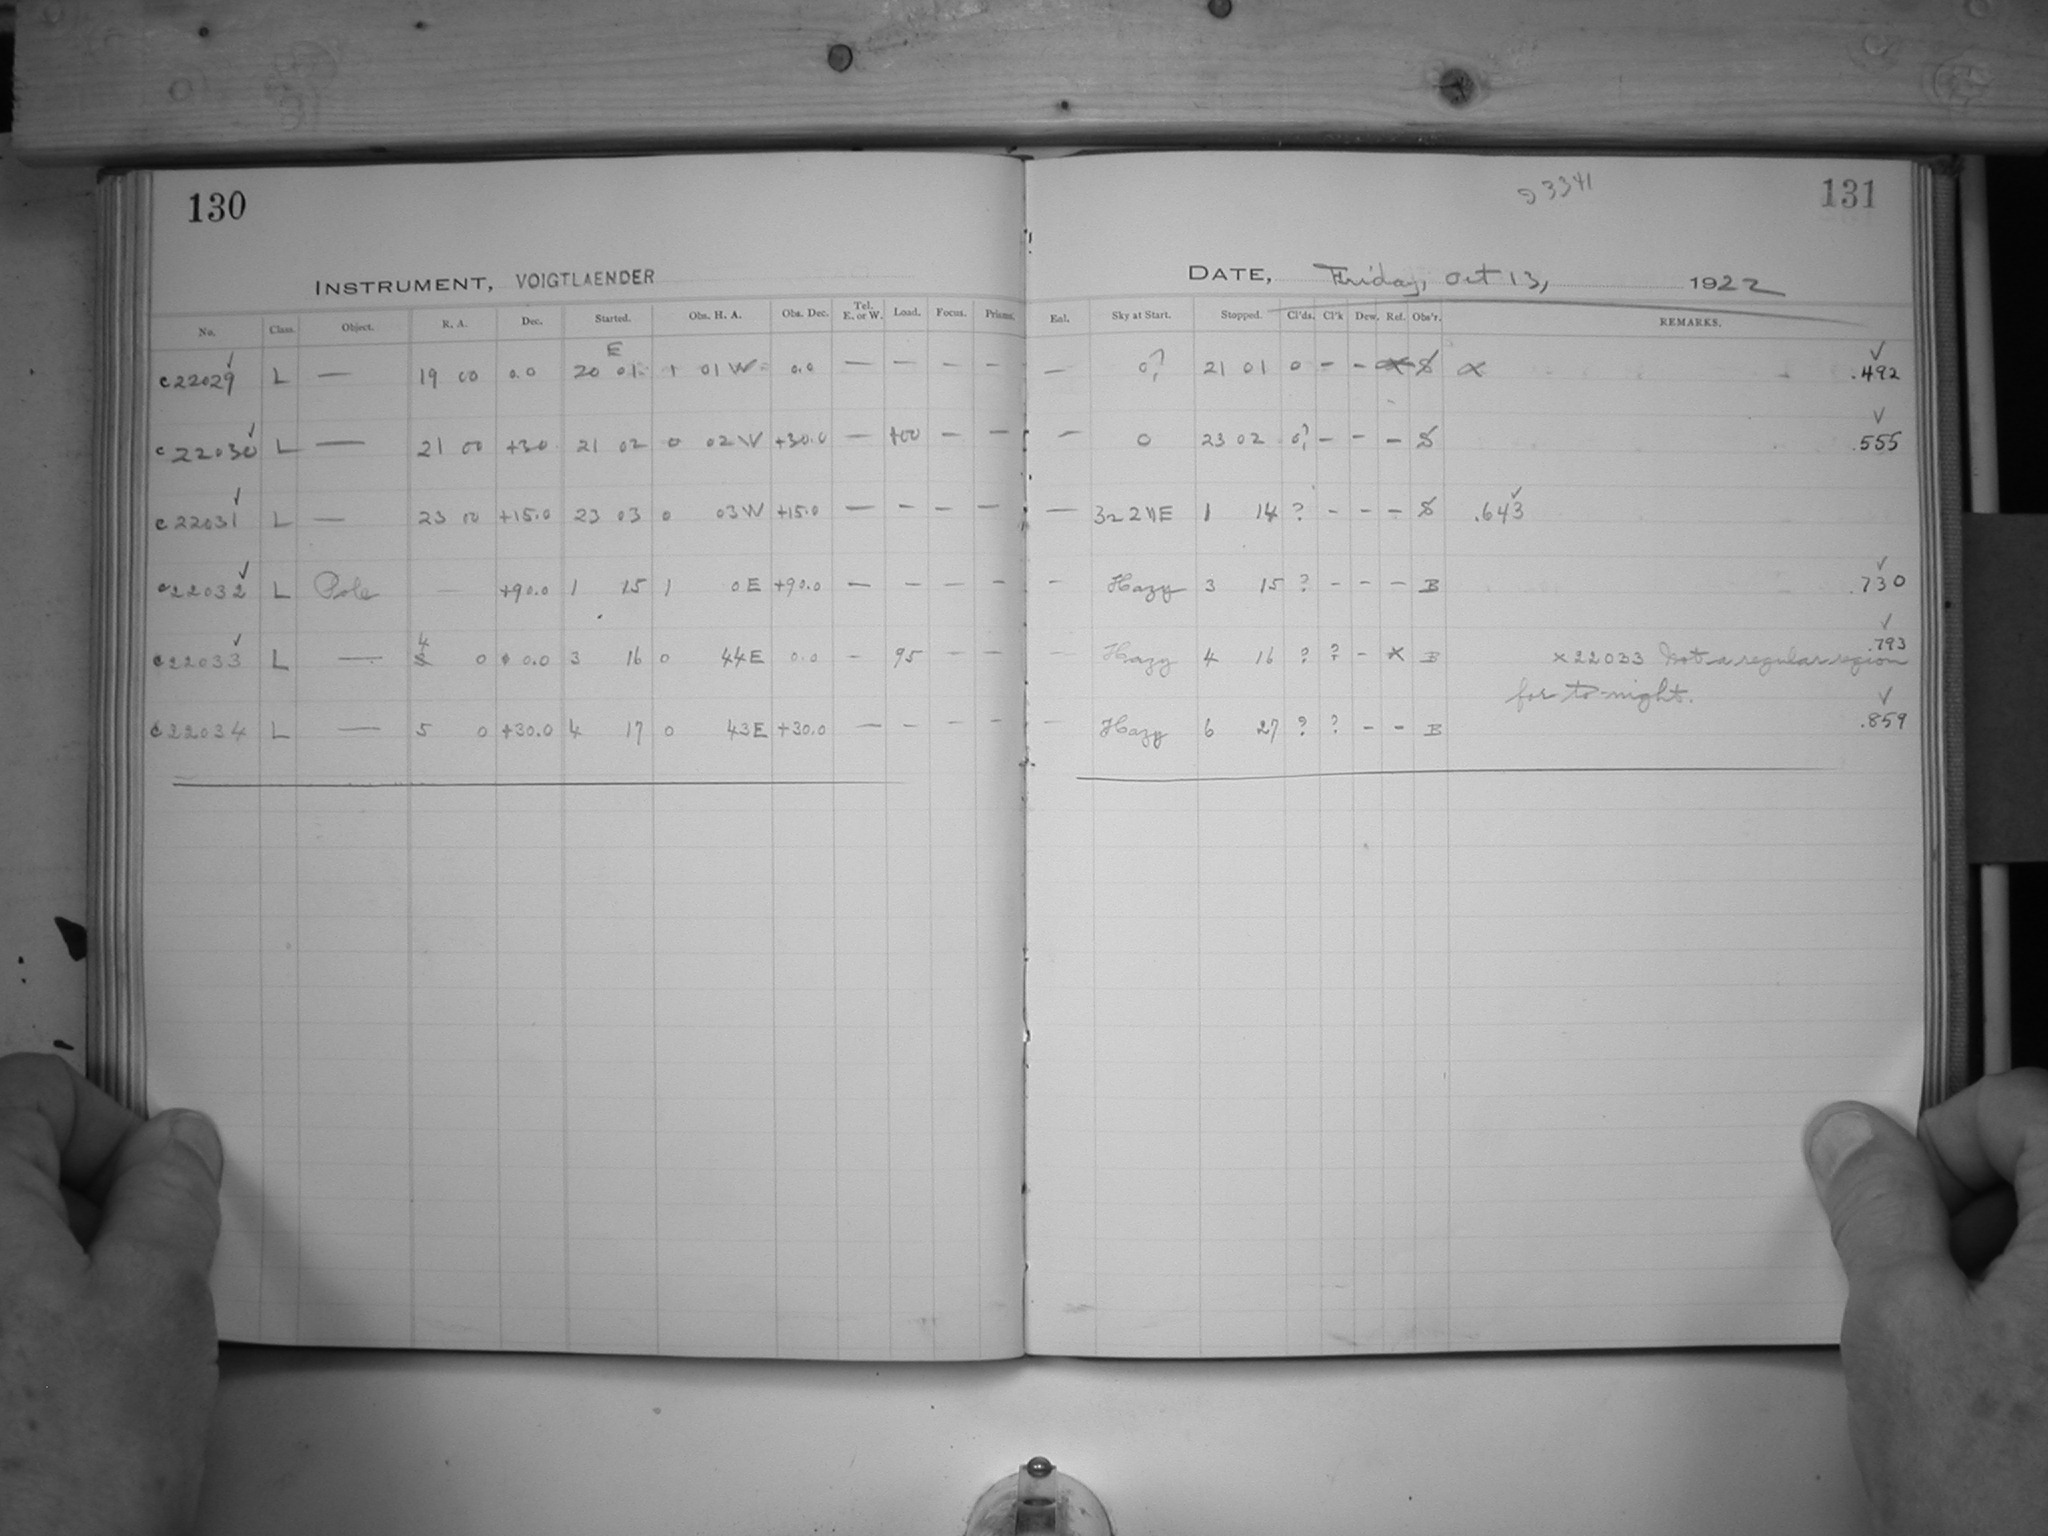 130
131
3341
INSTRUMENT, VOIGTLAENDER
DATE, Friday, Oct 13, 1922
No. Class. Object. R. A. Dec. Started. Obs. H. A. Obs. Dec. Tel. E. or W. Load. Focus. Prisms. Eal. Sky at Start. Stopped. Cl'ds. Cl'k Dew. Ref. Obs'r. REMARKS.
E
c22029 ✓ L — 19 00 0.0 20 01 1 01 W 0.0 — — — — — 0? 21 01 0 - - S ✓ .492
c22030 ✓ L — 21 00 +30 21 02 0 02 W +30.0 — 100 — — — 0 23 02 0? - - - S ✓ .555
c22031 ✓ L — 23 00 +15.0 23 03 0 03 W +15.0 — — — — — 1 14 ? - - - S .643 ✓
c22032 ✓ L Pole — +90.0 1 15 1 0 E +90.0 — — — — - Hazy 3 15 ? - - - B ✓ .730
c22033 ✓ L — 4 0 0.0 3 16 0 44 E 0.0 - 95 - - - Hazy 4 16 ? ? - x B x 22033 Not a regular region ✓ .793
for to-night.
c22034 L — 5 0 +30.0 4 17 0 43 E +30.0 — - - - — Hazy 6 27 ? ? - - B ✓ .859